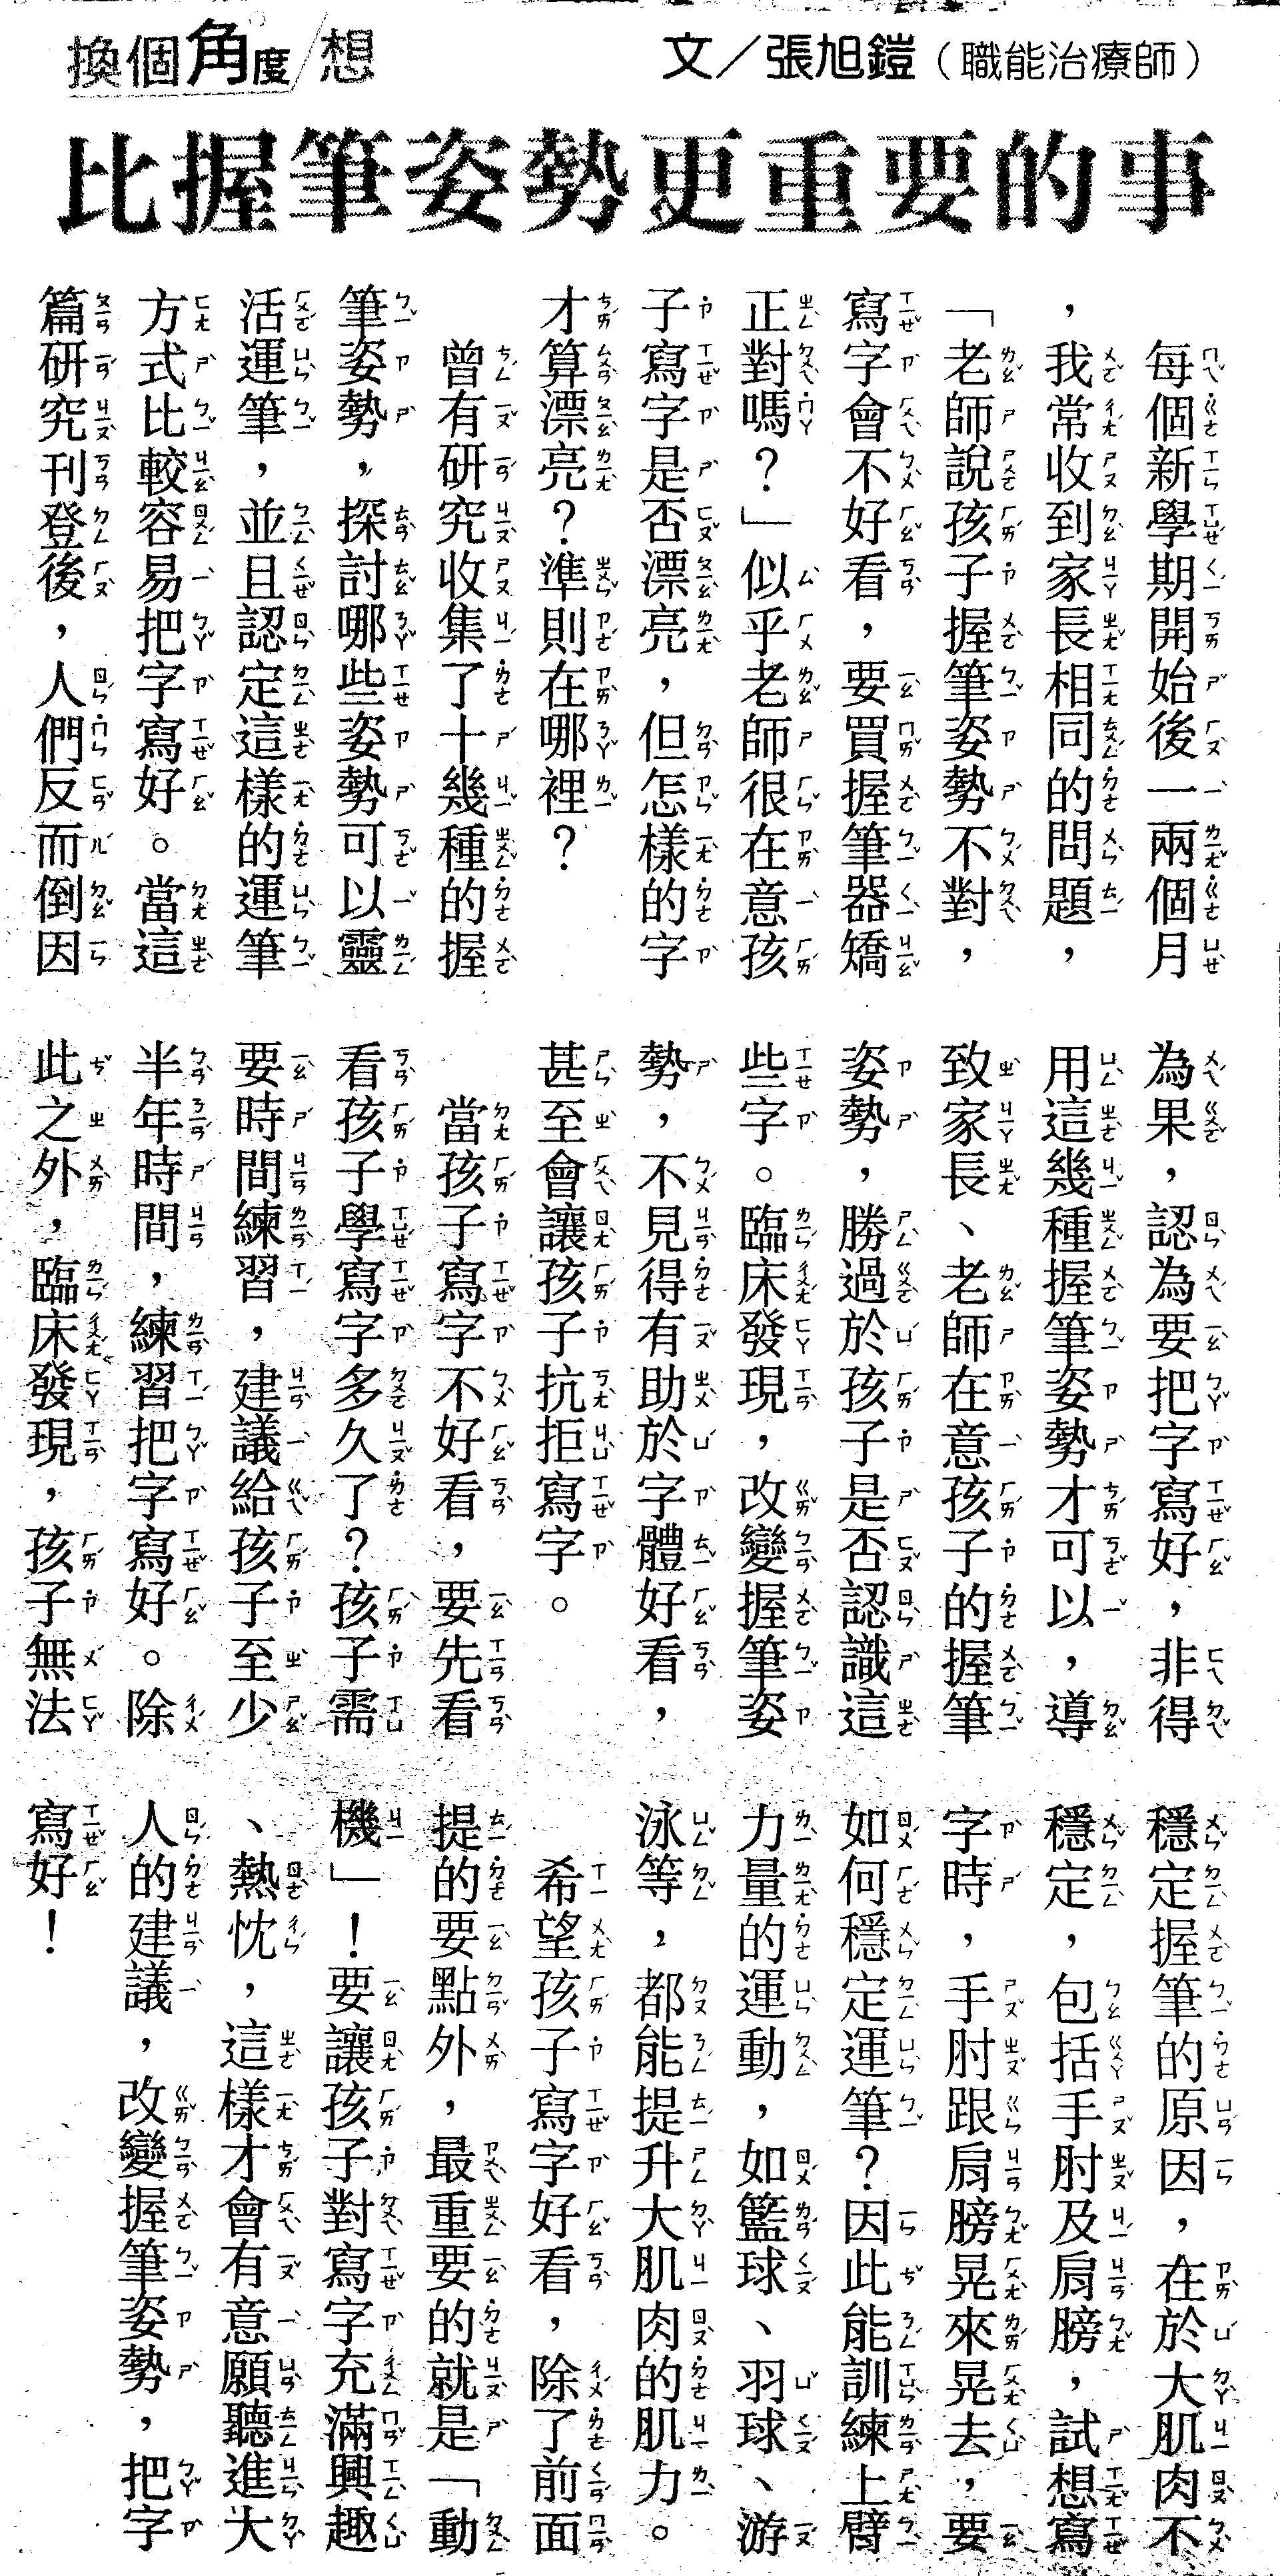 換個角度/想
文／張旭鎧（職能治療師）
比握筆姿勢更重要的事
每個新學期開始後一兩個月
，我常收到家長相同的問題，
「老師說孩子握筆姿勢不對，
寫字會不好看，要買握筆器矯
正對嗎？」似乎老師很在意孩
子寫字是否漂亮，但怎樣的字
才算漂亮？準則在哪裡？
曾有研究收集了十幾種的握
筆姿勢，探討哪些姿勢可以靈
活運筆，並且認定這樣的運筆
方式比較容易把字寫好。當這
篇研究刊登後，人們反而倒因
為果，認為要把字寫好，非得
用這幾種握筆姿勢才可以，導
致家長、老師在意孩子的握筆
姿勢，勝過於孩子是否認識這
些字。臨床發現，改變握筆姿
勢，不見得有助於字體好看，
甚至會讓孩子抗拒寫字。
當孩子寫字不好看，要先看
看孩子學寫字多久了？孩子需
要時間練習，建議給孩子至少
半年時間，練習把字寫好。除
此之外，臨床發現，孩子無法
穩定握筆的原因，在於大肌肉不
穩定，包括手肘及肩膀，試想寫
字時，手肘跟肩膀晃來晃去，要
如何穩定運筆？因此能訓練上臂
力量的運動，如籃球、羽球、游
泳等，都能提升大肌肉的肌力。
希望孩子寫字好看，除了前面
提的要點外，最重要的就是「動
機」！要讓孩子對寫字充滿興趣
、熱忱，這樣才會有意願聽進大
人的建議，改變握筆姿勢，把字
寫好！